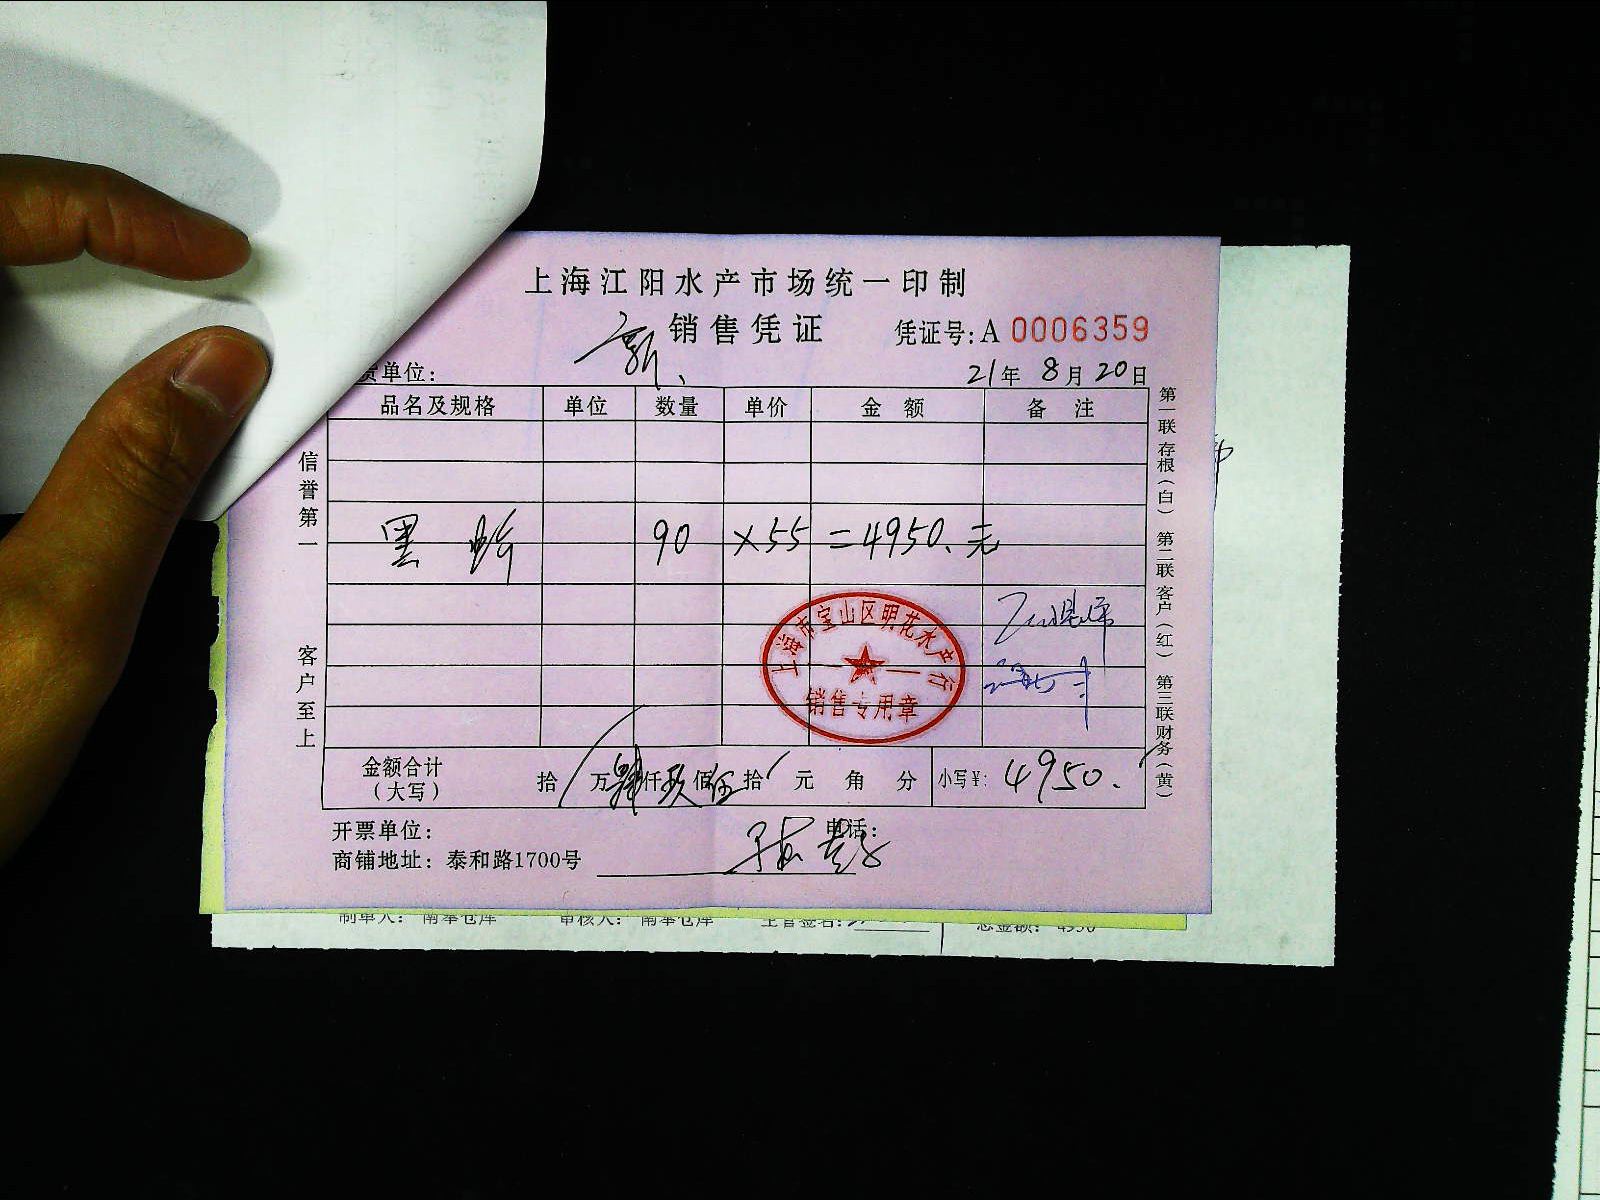 上海江阳水产市场统一印制
销售凭证 凭证号:A 0006359
新
货单位:
21年8月20日
品名及规格 单位 数量 单价 金额 备注
黑 90 ×55 =4950.元
上海市宝山区明花水产行
销售专用章
金额合计（大写） 拾 万肆仟玖佰伍拾 元 角 分 小写¥: 4950.
开票单位: 电话:
商铺地址: 泰和路1700号
信誉第一 客户至上
第一联存根（白） 第二联客户（红） 第三联财务（黄）
制单人: 南奉仓库 审核人: 南奉仓库 主管签名: 总金额: 4950